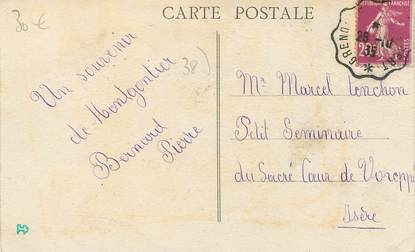 30 €
CARTE POSTALE
38)
Un souvenir
de Montgontier
Bernard
Pierre
RÉPUBLIQUE FRANÇAISE
25
GRENO
26-10
35
Mr Marcel Tonchon
Petit Seminaire
du Sacré Cœur de Vorepp
Isère